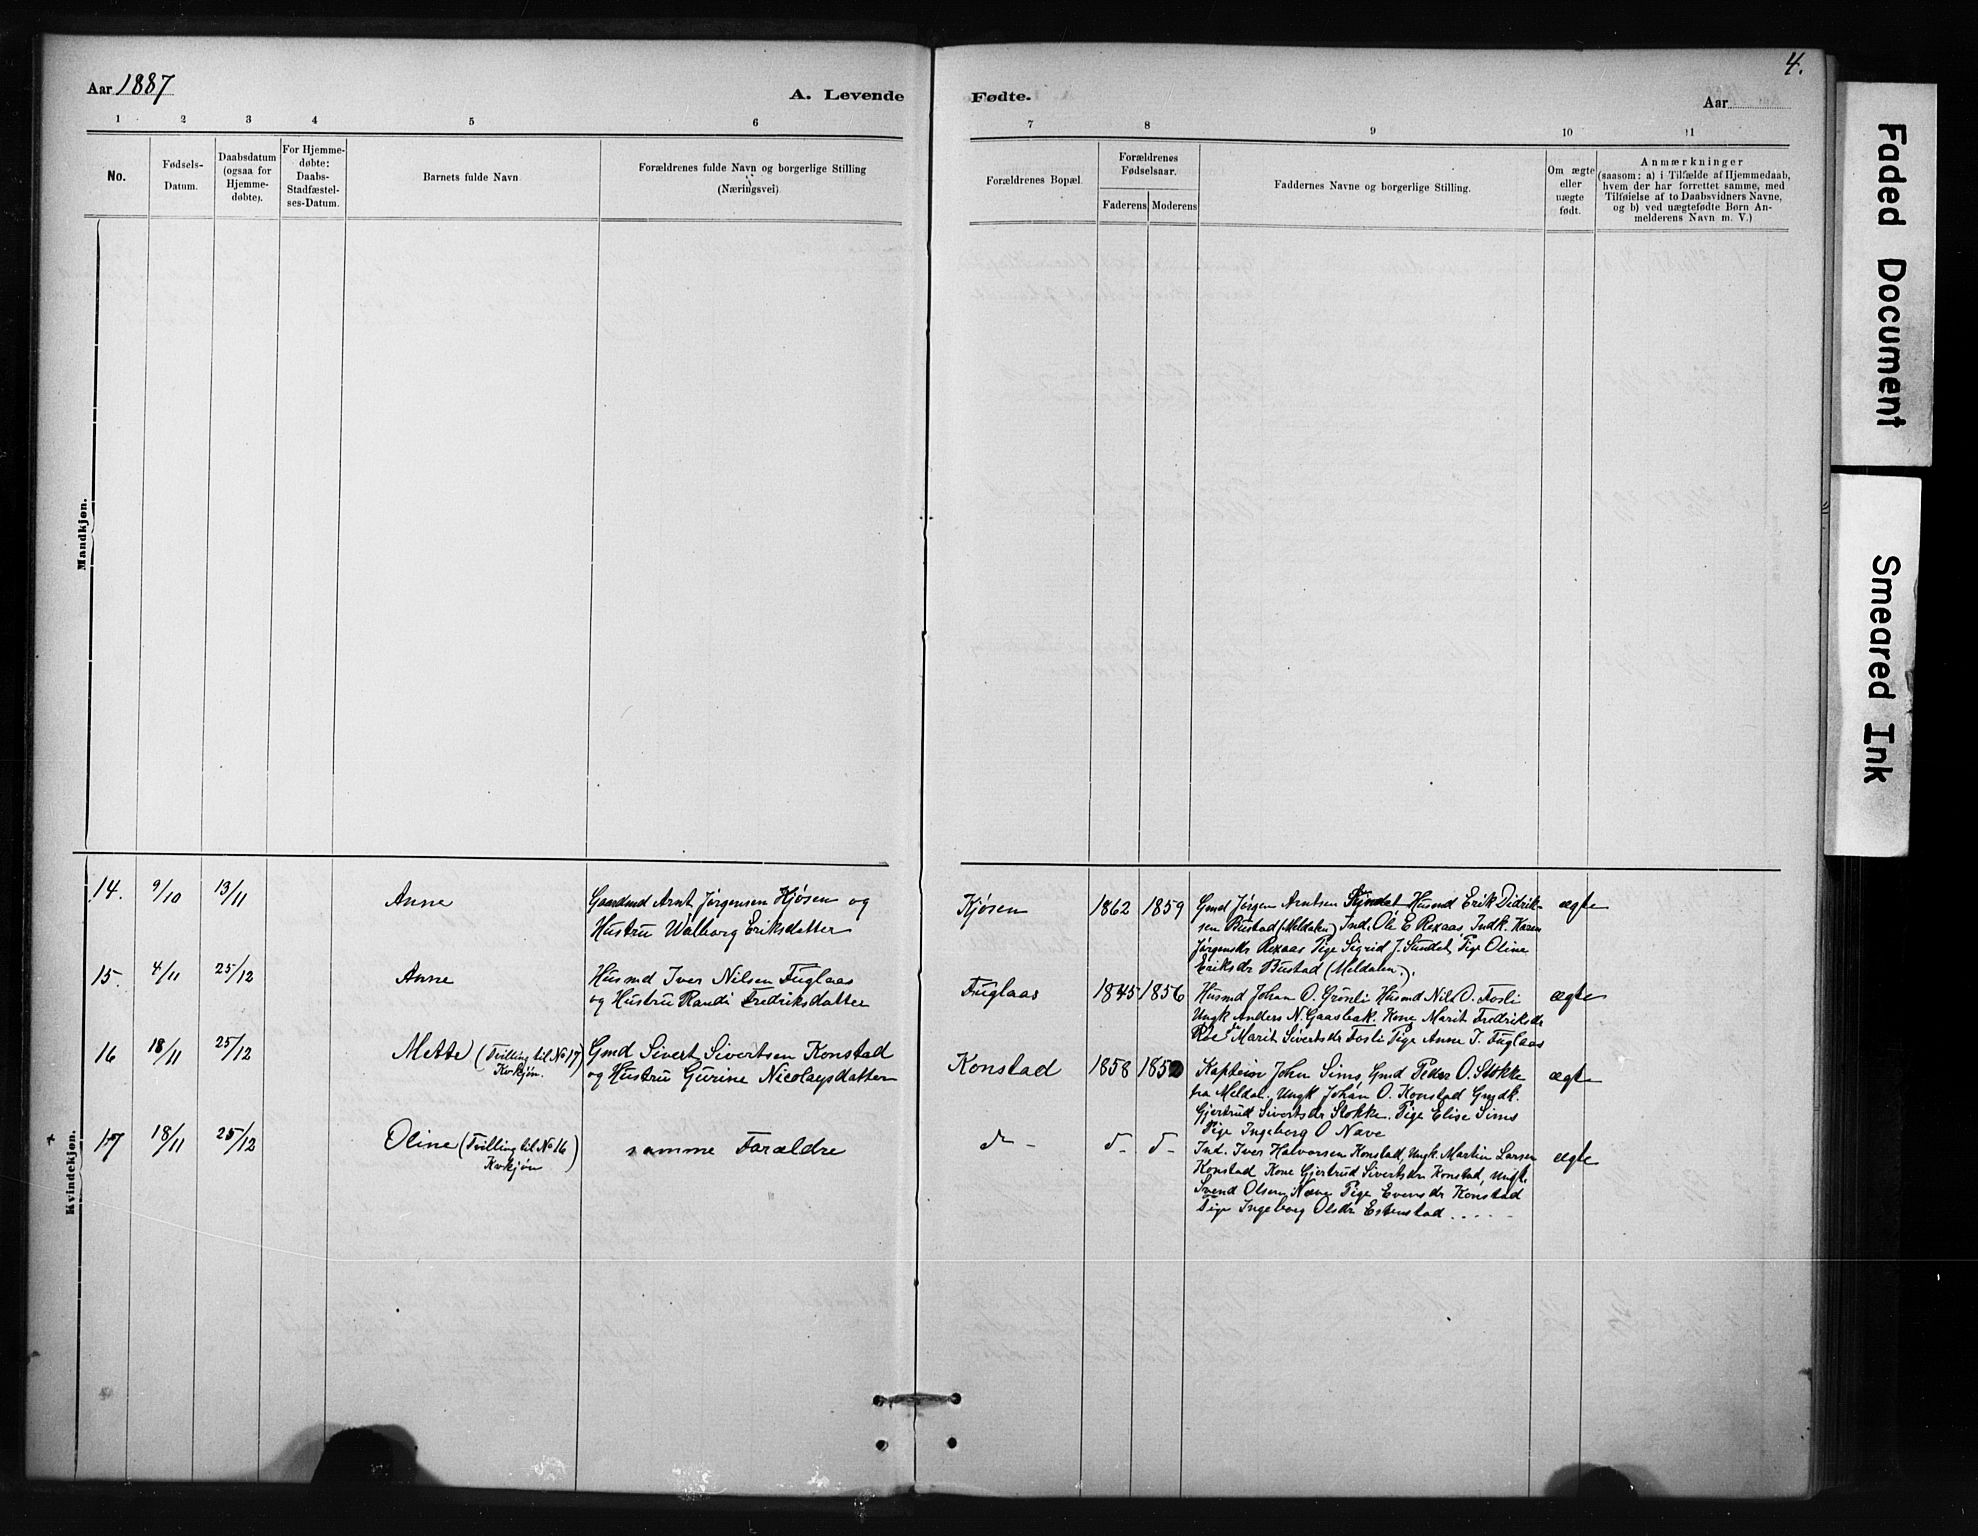 4.
Aar 1887
A. Levende Fødte.
Aar
1 2 3 4 5 6 7 8 9 10 11
No.
Fødsels-
Datum.
Daabsdatum
(ogsaa for
Hjemme-
døbte).
For Hjemme-
døbte:
Daabs-
Stadfæstel-
ses-Datum.
Barnets fulde Navn
Forældrenes fulde Navn og borgerlige Stilling
(Næringsvei)
Forældrenes Bopæl.
Forældrenes
Fødselsaar.
Faderens Moderens
Faddernes Navne og borgerlige Stilling.
Om ægte
eller
uægte
født.
Anmærkninger
(saasom: a) i Tilfælde af Hjemmedaab,
hvem der har forrettet samme, med
Tilføielse af to Daabsvidners Navne,
og b) ved uægtefødte Børn An-
melderens Navn m. V.)
Mandkjøn.
Kvindekjøn.
14. 9/10 13/11 Anne
Gaardmd Arnt Jørgensen Kjøsen og
Hustru Walborg Eriksdatter
Kjøsen 1862 1859
Gmd Jørgen Arntsen Husmd Erik Didrik-
sen Bustad (Meldalen) Ind. Ole E Rexaas Indk. Karen
Jørgensdr Rexaas Pige Sigrid J. Sundet, Pige Oline
Eriksdr Bustad (Meldalen).
ægte
15. 4/11 25/12 Anne
Husmd Iver Nilsen Fuglaas
og Hustru Randi Fredriksdatter
Fuglaas 1845 1856
Husmd Johan O. Grønli Husmd Nils O. Fosli
Ungk Anders N. Gaasbak. Kone Marit Fredriksdr
Roe Marit Sivertsdr Fosli Pige Anne I. Fuglaas
ægte
16 18/11 25/12 Mette (Tvilling til No 17)
Kvkjøn.
Gmd Sivert Sivertsen Konstad
og Hustru Gurine Nicolaysdatter
Konstad 1858 1852
Kaptein John Sims, Gmd Peder O. Stokke
fra Meldal. Ungk Johan O. Konstad Gmdk.
Gjertrud Sivertsdr Stokke. Pige Elise Sims
Pige Ingeborg O Nave
ægte
17 18/11 25/12 Oline (Tvilling til No 16)
Kvkjøn
samme Forældre
do - do - do -
Ind. Iver Halvorsen Konstad, Ungk Martin Larsen
Konstad Kone Gjertrud Sivertsdr Konstad, Ungk.
Svend Olsen Nave Pige Evensdr Konstad
Pige Ingeborg Olsdr Estenstad
ægte
Faded Document
Smeared Ink